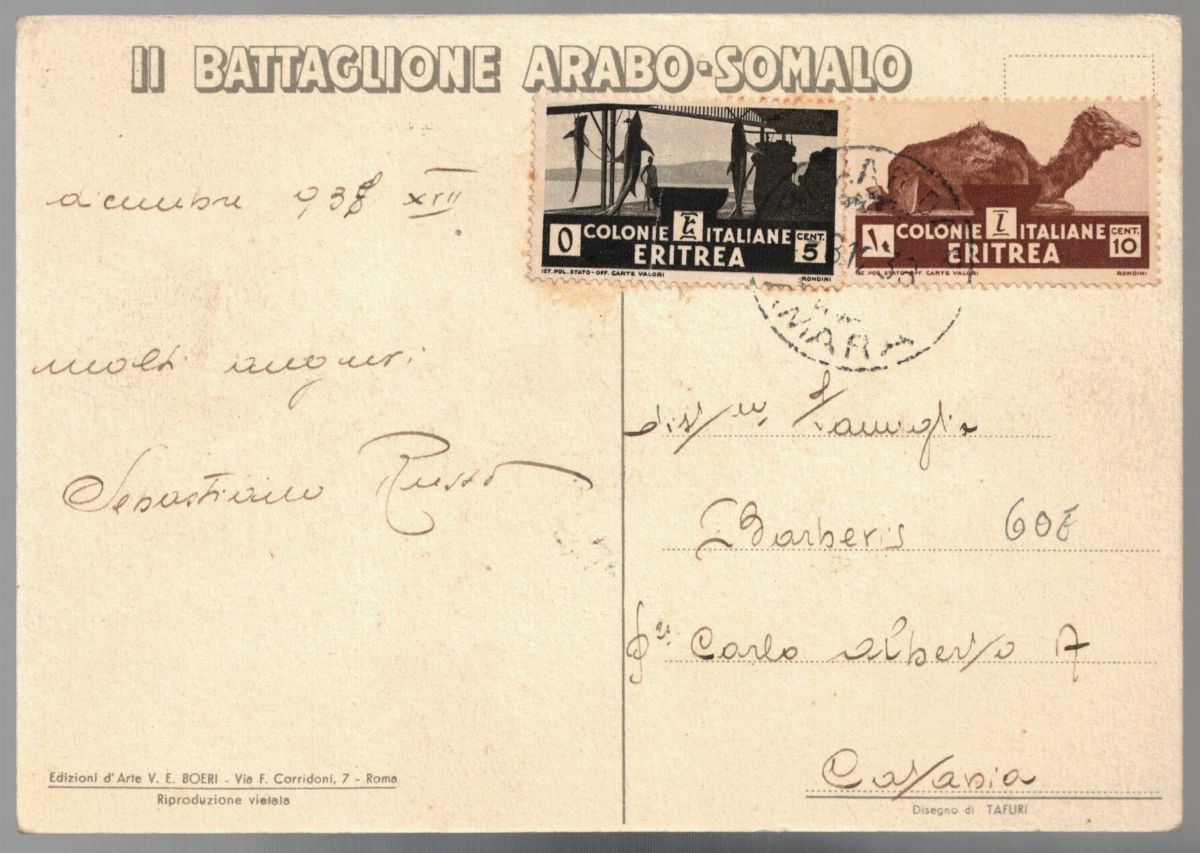 II BATTAGLIONE ARABO-SOMALO
dicembre 938 XVII
molti auguri
Sebastiano Russo
٥ COLONIE ITALIANE CENT. 5
ERITREA
IST. POL. STATO - OFF. CARTE VALORI RONDINI
١٠ COLONIE ITALIANE CENT. 10
ERITREA
IST. POL. STATO - OFF. CARTE VALORI RONDINI
Famiglia
Barberis 60£
Carlo Alberto 7
Catania
Edizioni d'Arte V. E. BOERI - Via F. Corridoni, 7 - Roma
Riproduzione vietata
Disegno di TAFURI